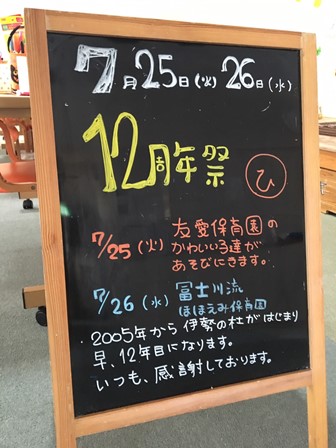 7月25日(火)26日(水)
12周年祭
ひ
7/25(火) 友愛保育園の
かわいい子達が
あそびにきます。
7/26(水) 冨士川流
ほほえみ保育園
2005年から伊勢の杜がはじまり
早、12年目になります。
いつも、感謝しております。